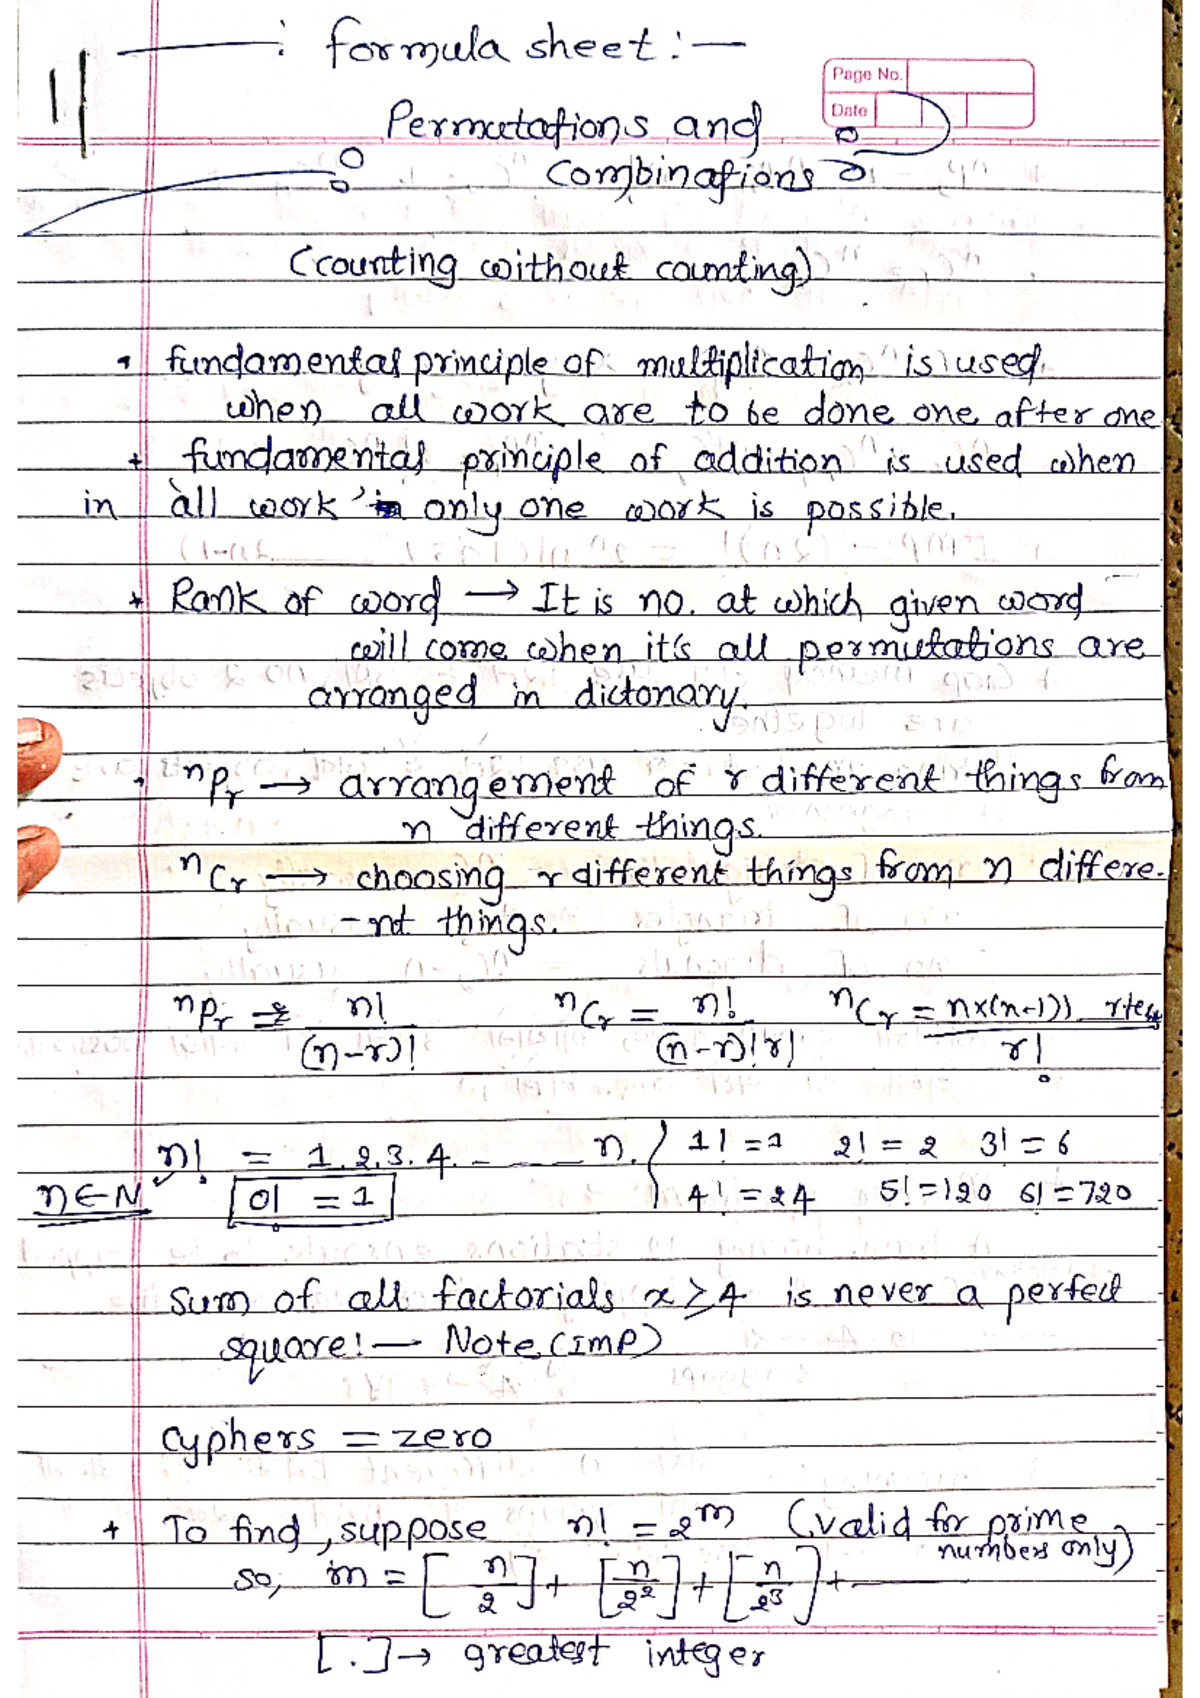 : formula sheet :—
Page No.
Date
Permutations and
Combinations
(counting without counting)
fundamental principle of "multiplication" is used
when all work are to be done one after one
+ fundamental principle of "addition" is used when
in 'all work' only one work is possible.
* Rank of word → It is no. at which given word
will come when it's all permutations are
arranged in dictonary.
ⁿPᵣ → arrangement of r different things from
n different things.
ⁿCᵣ → choosing r different things from n differe-
-nt things.
ⁿPᵣ = n!/(n-r)! ⁿCᵣ = n!/(n-r)!r! ⁿCᵣ = n×(n-1)) r terms/r!
n! = 1.2.3.4. - - - n. 1! = 1 2! = 2 3! = 6
n∈N 0! = 1 4! = 24 5! = 120 6! = 720
Sum of all factorials x ≥ 4 is never a perfect
square! — Note (IMP)
Cyphers = zero
+ To find, suppose n! = 2ᵐ (valid for prime
numbers only)
so, m = [n/2] + [n/2²] + [n/2³] + ———
[.] → greatest integer